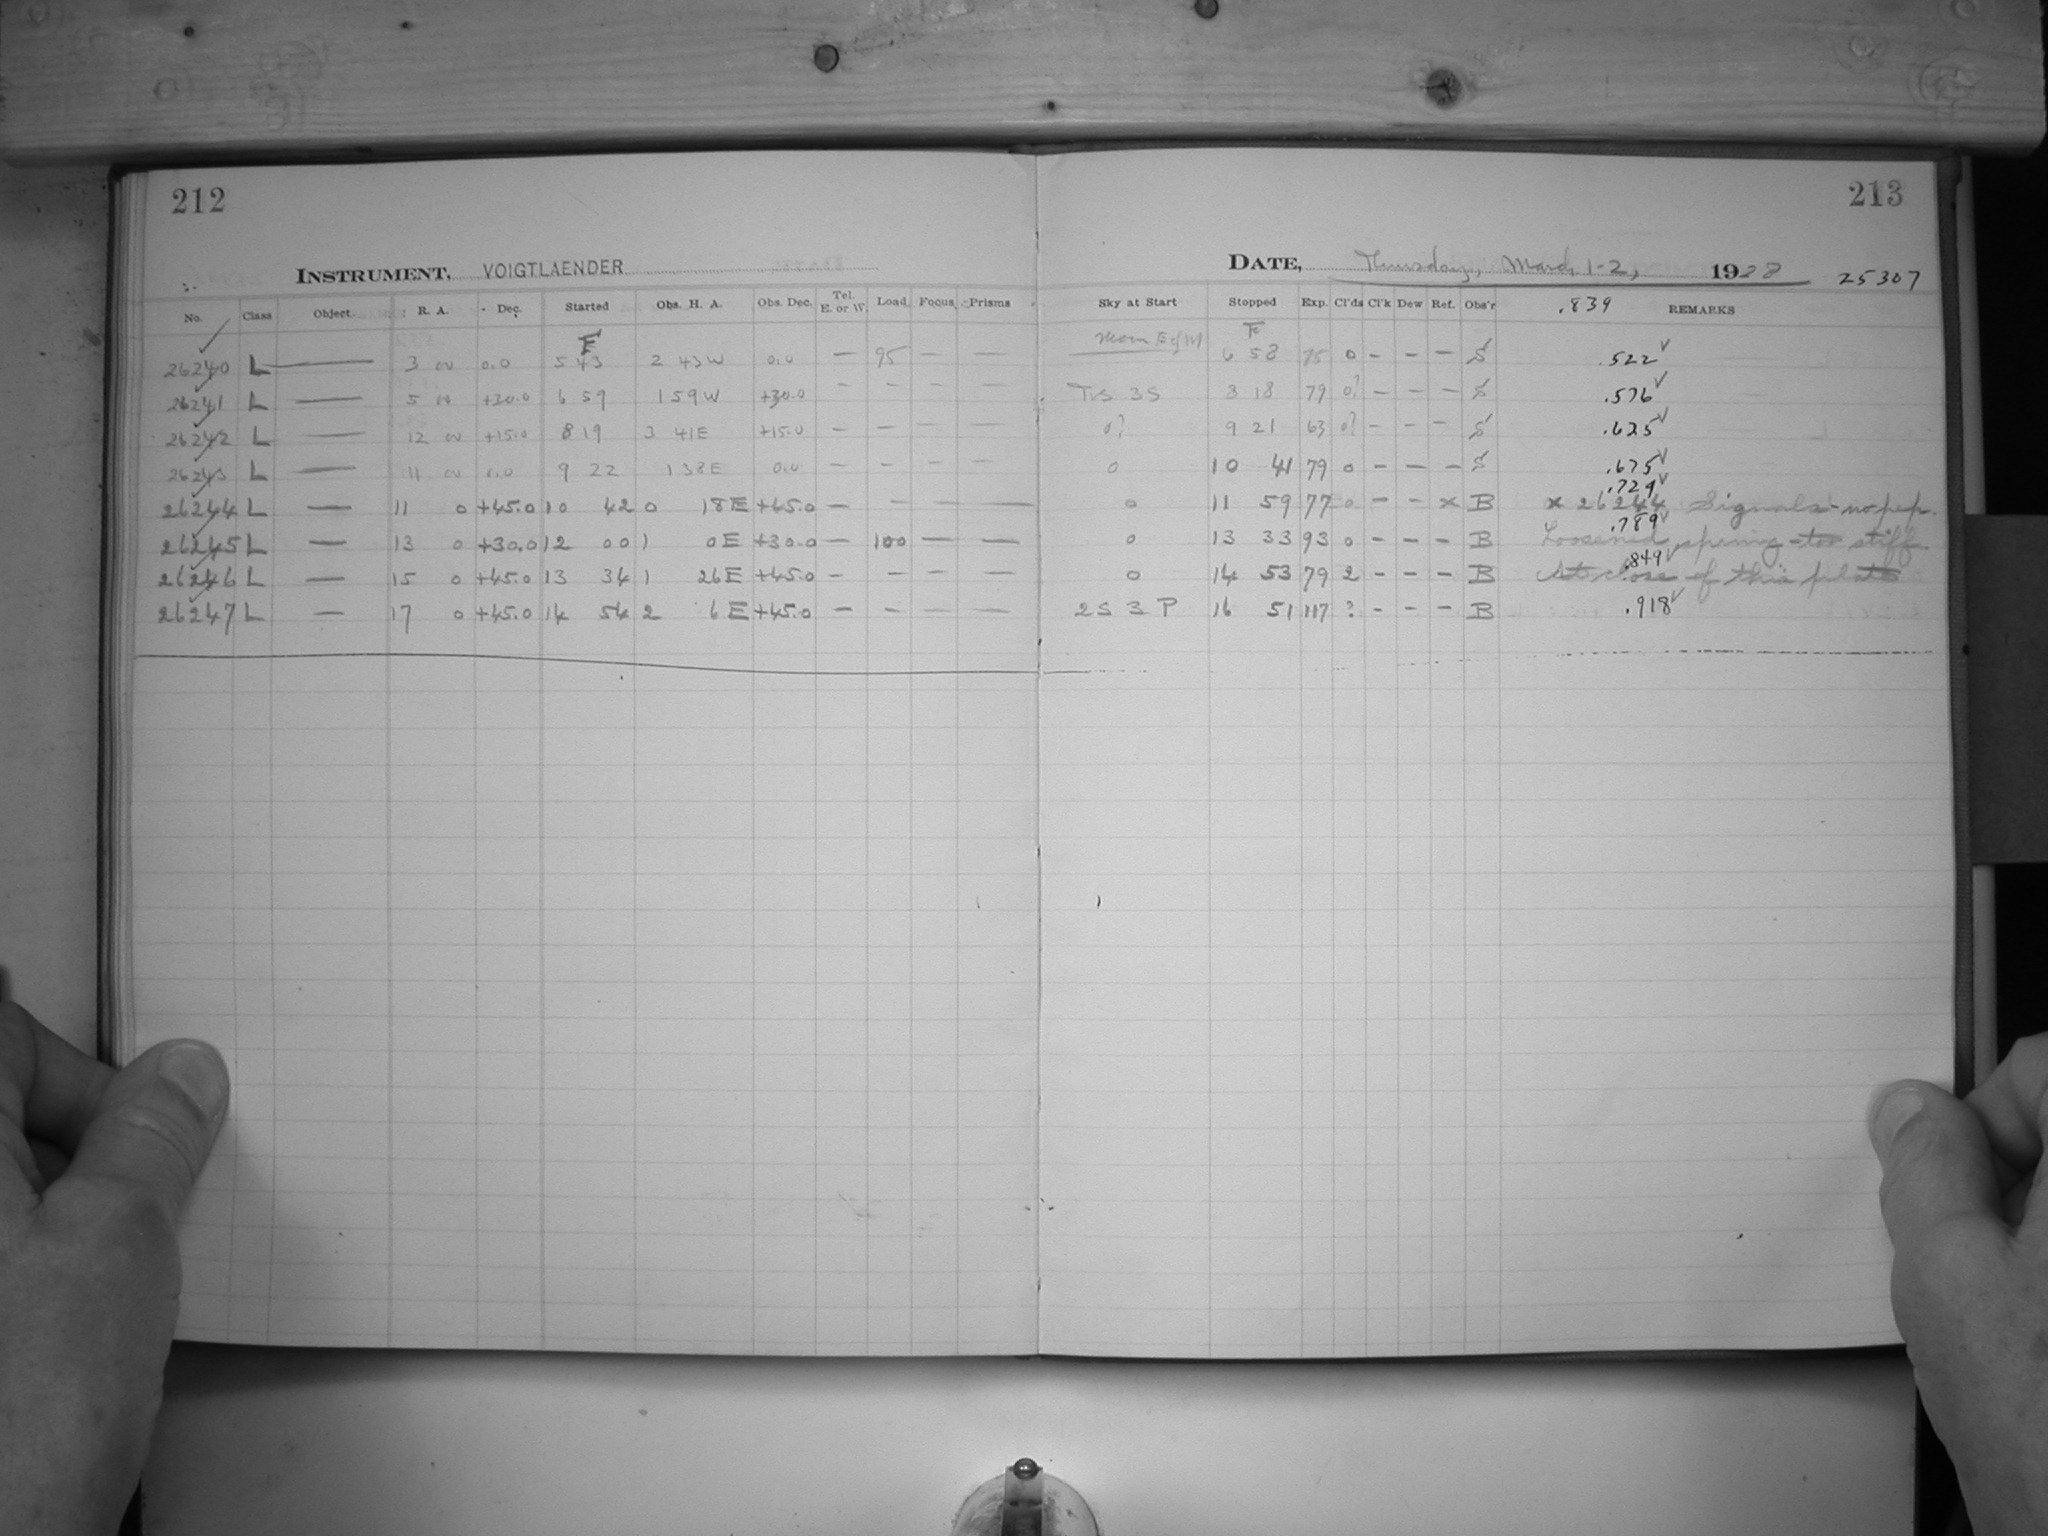 212
213
INSTRUMENT, VOIGTLAENDER
DATE, Thursday, March 1-2, 1928 25307
No. Class Object R. A. Dec. Started Obs. H. A. Obs. Dec. Tel. E. or W. Load Focus Prisms Sky at Start Stopped Exp. Cl'ds Cl'k Dew Ref. Obs'r .839 REMARKS
F F
26240 L — 3 0 0.0 5 43 2 43W 0.0 — 95 — — Moon E of M 6 58 75 0 - - - S .522 ✓
26241 L — 5 0 +30.0 6 59 1 59W +30.0 - - - - 3S 8 18 79 0? - - - S .576 ✓
26242 L — 12 0 +15.0 8 19 3 41E +15.0 - - - - 0? 9 21 63 0? - - - S .625 ✓
26243 L — 11 0 0.0 9 22 1 38E 0.0 - - - - 0 10 41 79 0 - - - S .675 ✓
.729 ✓
26244 L — 11 0 +45.0 10 42 0 18E +45.0 - - - - 0 11 59 77 0 - - x B x 26244 Signals - no pep.
.789 ✓
26245 L — 13 0 +30.0 12 00 1 0E +30.0 — 100 — — 0 13 33 93 0 - - - B Loosened spring - too stiff.
.849 ✓
26246 L — 15 0 +45.0 13 34 1 26E +45.0 - - - - 0 14 53 79 2 - - - B At close of this plate
26247 L — 17 0 +45.0 14 54 2 6E +45.0 - - - - 2 S 3 P 16 51 117 ? - - - B .918 ✓